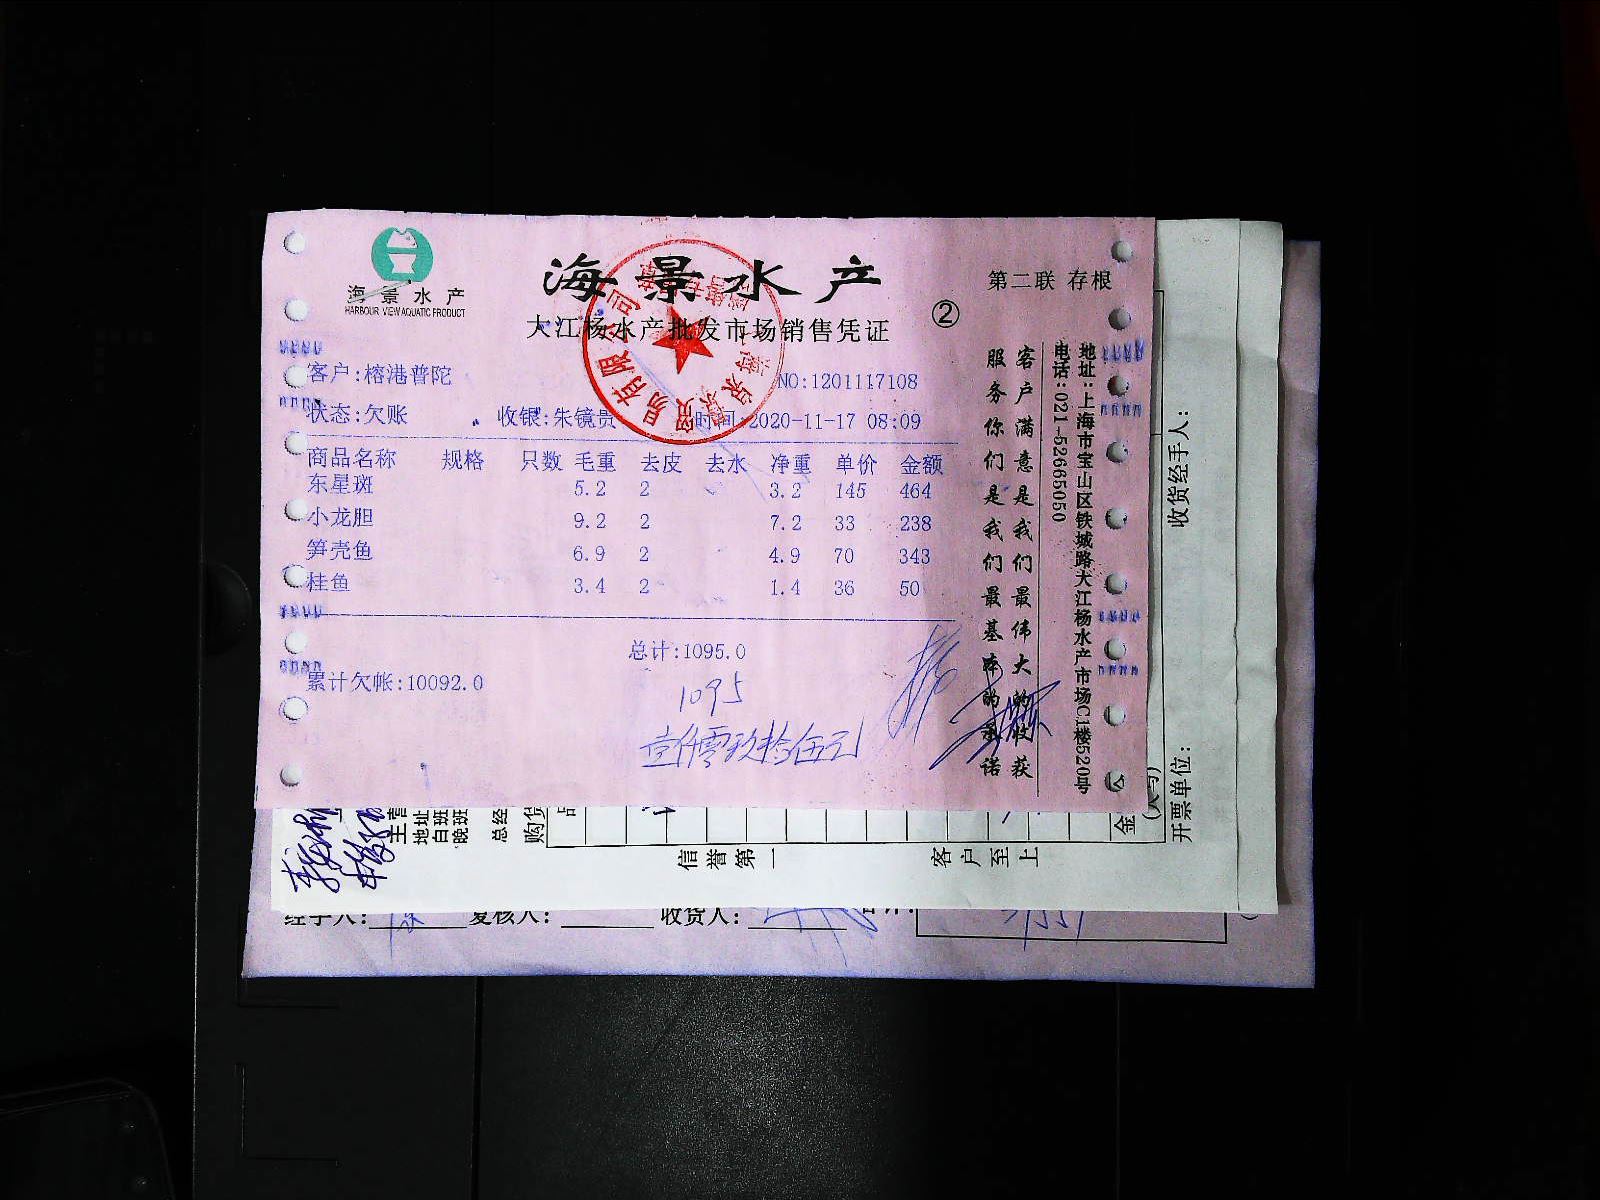 海景水产
HARBOUR VIEW AQUATIC PRODUCT
海景水产
大江杨水产批发市场销售凭证
②
第二联 存根
客户:榕港普陀
NO:1201117108
状态:欠账 收银:朱镜贵 时间:2020-11-17 08:09
商品名称 规格 只数 毛重 去皮 去水 净重 单价 金额
东星斑 5.2 2 3.2 145 464
小龙胆 9.2 2 7.2 33 238
笋壳鱼 6.9 2 4.9 70 343
桂鱼 3.4 2 1.4 36 50
总计:1095.0
累计欠帐:10092.0
1095
壹仟零玖拾伍元
客户满意是我们最伟大的收获
服务你们是我们最基本的承诺
地址:上海市宝山区铁城路大江杨水产市场C1楼520号
电话:021-52665050
收货经手人:
开票单位:
主营
地址
白班
晚班
总经
购货
信誉第一
客户至上
经手人:
复核人:
收货人: